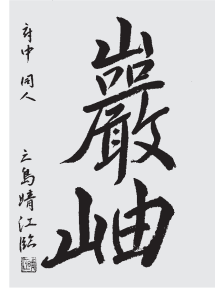 巖岫
府中 同人 三島晴江臨